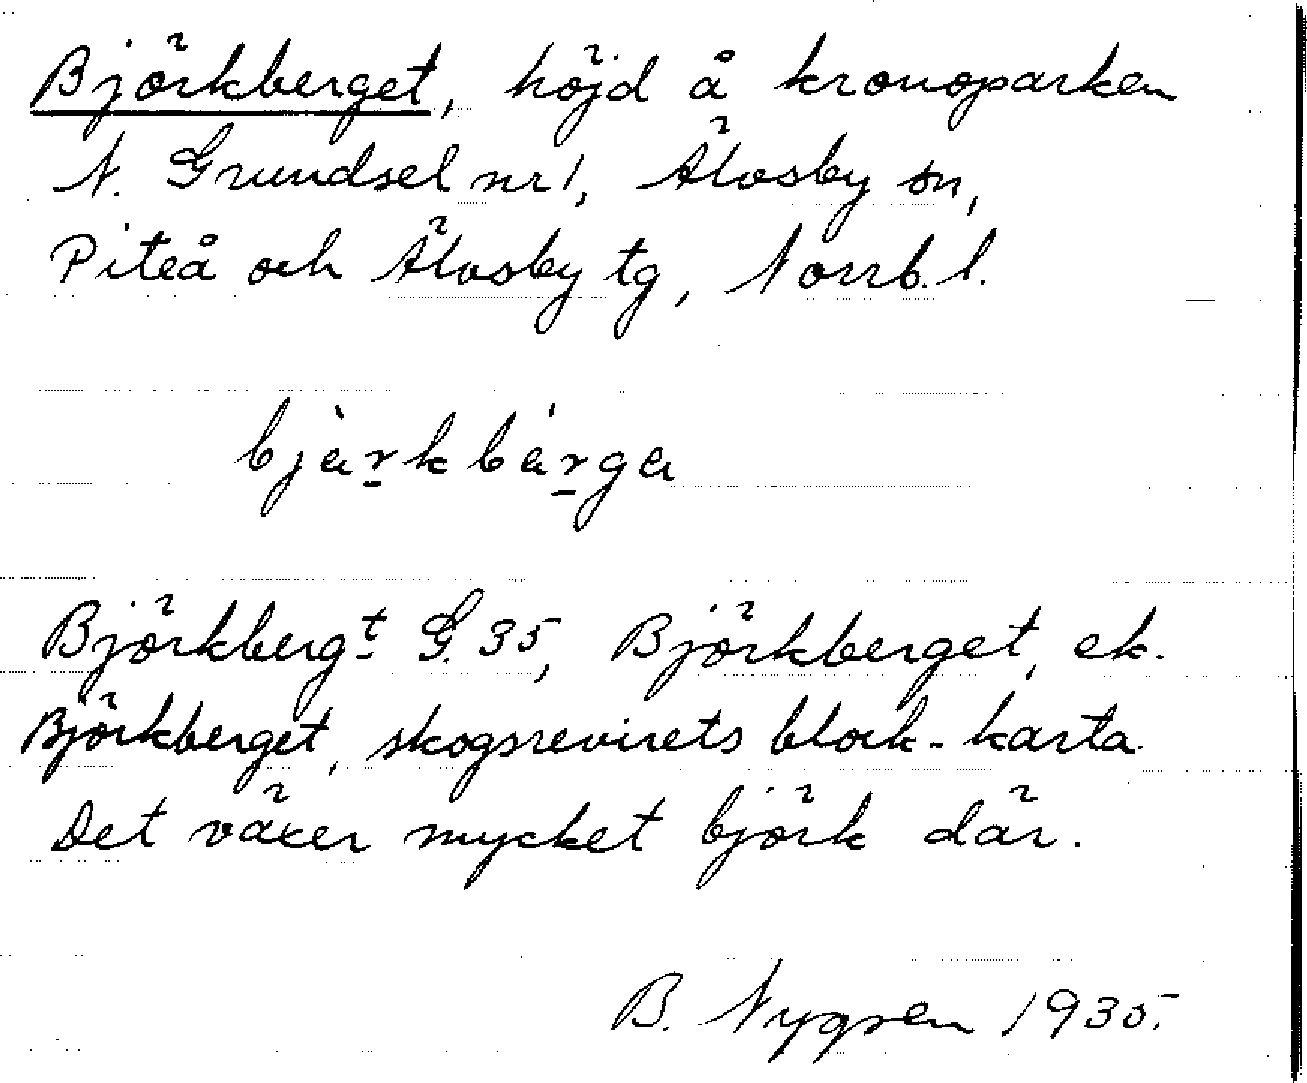 Björkberget, höjd å kronoparken
N. Grundsel nr 1, Älvsby sn,
Piteå och Älvsby tg, Norrb. l.
bjàr̠kbár̠ga
Björkbergt G. 35, Björkberget, ek.
Björkberget, skogsrevirets block-karta
Det växer mycket björk där.
B. Nygren 1935.